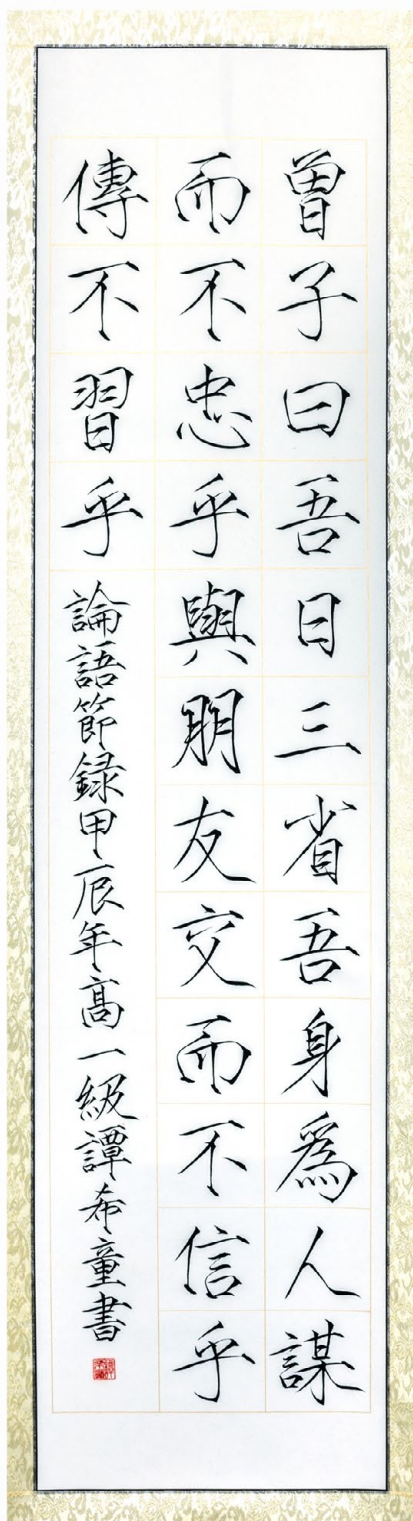 曾子曰吾日三省吾身爲人謀
而不忠乎與朋友交而不信乎
傳不習乎
論語節録甲辰年高一級譚希童書